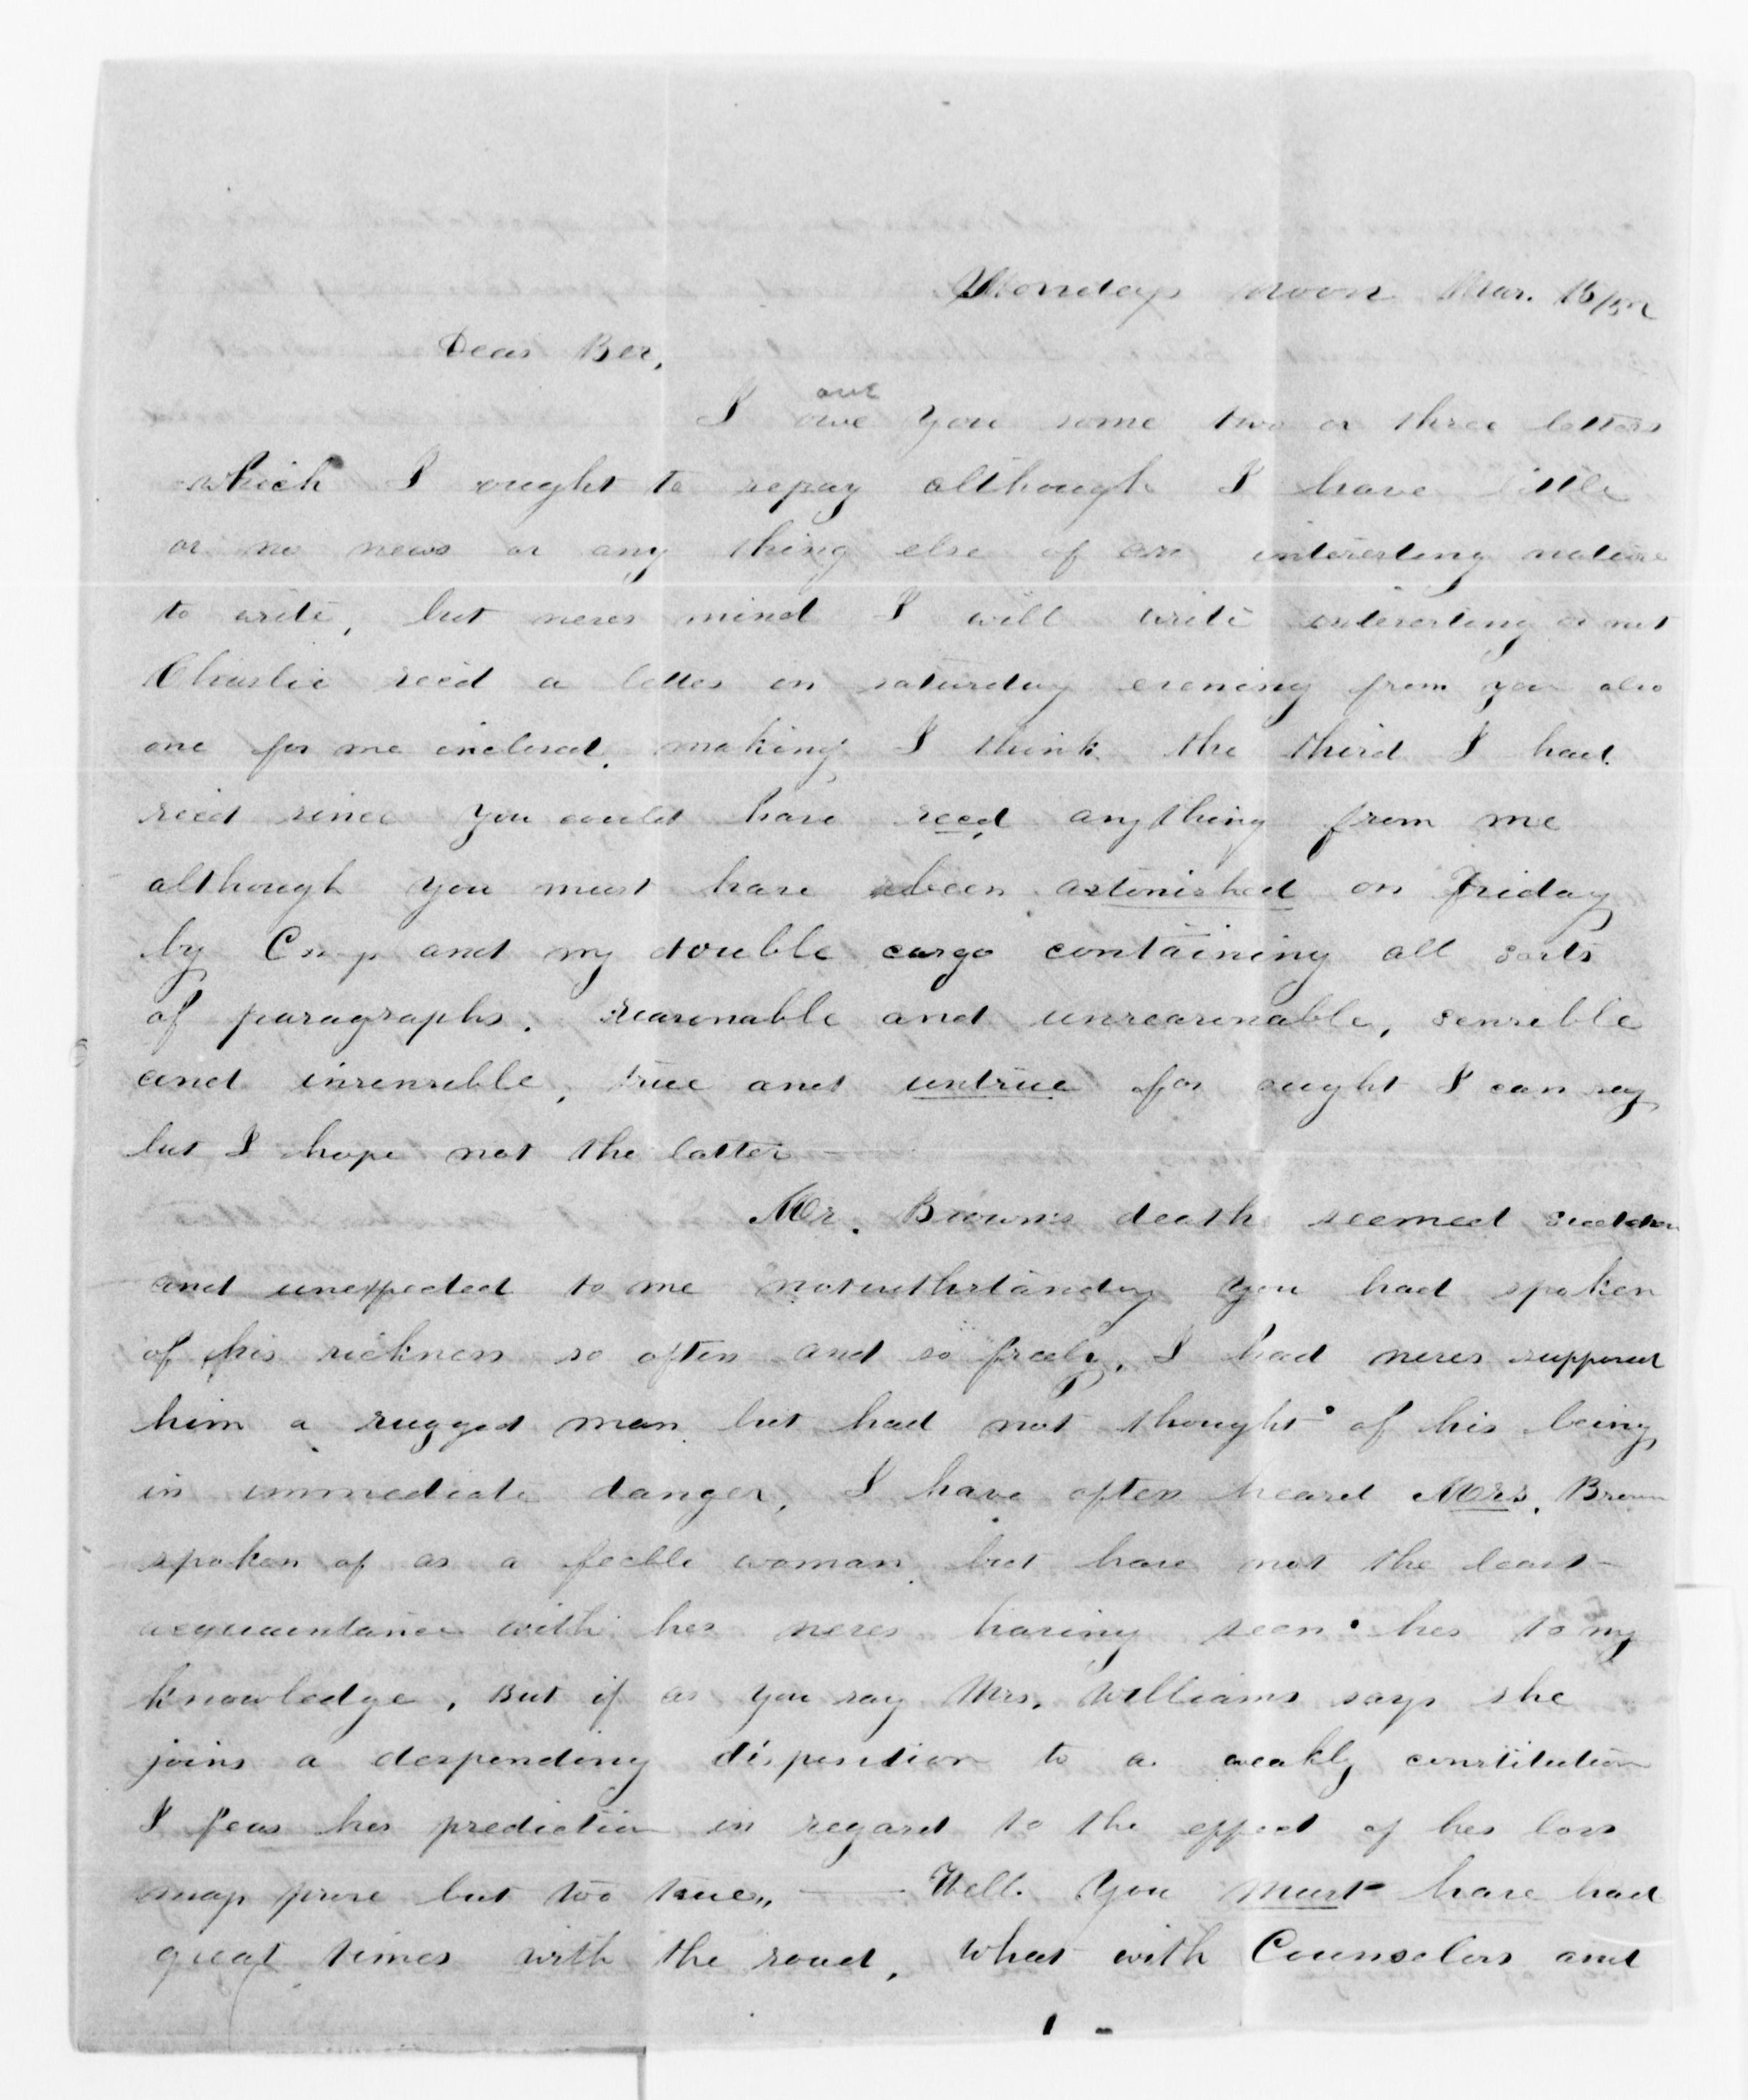 Monday noon Mar. 15/52
Dear Ber,
owe
I owe you some two or three letters
which I ought to repay although I have little
or no news or any thing else of an interesting nature
to write, but never mind I will write interesting or not
Charlie recd a letter on saturday evening from you also
one for me inclosed, making I think the third I had
recd since you could have recd anything from me
although you must have been astonished on Friday
by Csnp and my double cargo containing all sorts
of paragraphs. reasonable and unreasonable, sensible
and insensible, true and untrue for aught I can say
but I hope not the latter —
Mr. Brown's death seemed sudden
and unexpected to me notwithstanding you had spoken
of his sickness so often and so freely, I had never supposed
him a rugged man but had not thought of his being
in immediate danger, I have often heard Mrs. Brown
spoken of as a feeble woman but have not the least
acquaintance with her never having seen her to my
knowledge, But if as you say Mrs. Williams says she
joins a desponding disposition to a weakly constitution
I fear her prediction in regard to the effect of her loss
may prove but too true,, — Well. You must have had
great times with the road, what with Counselors and